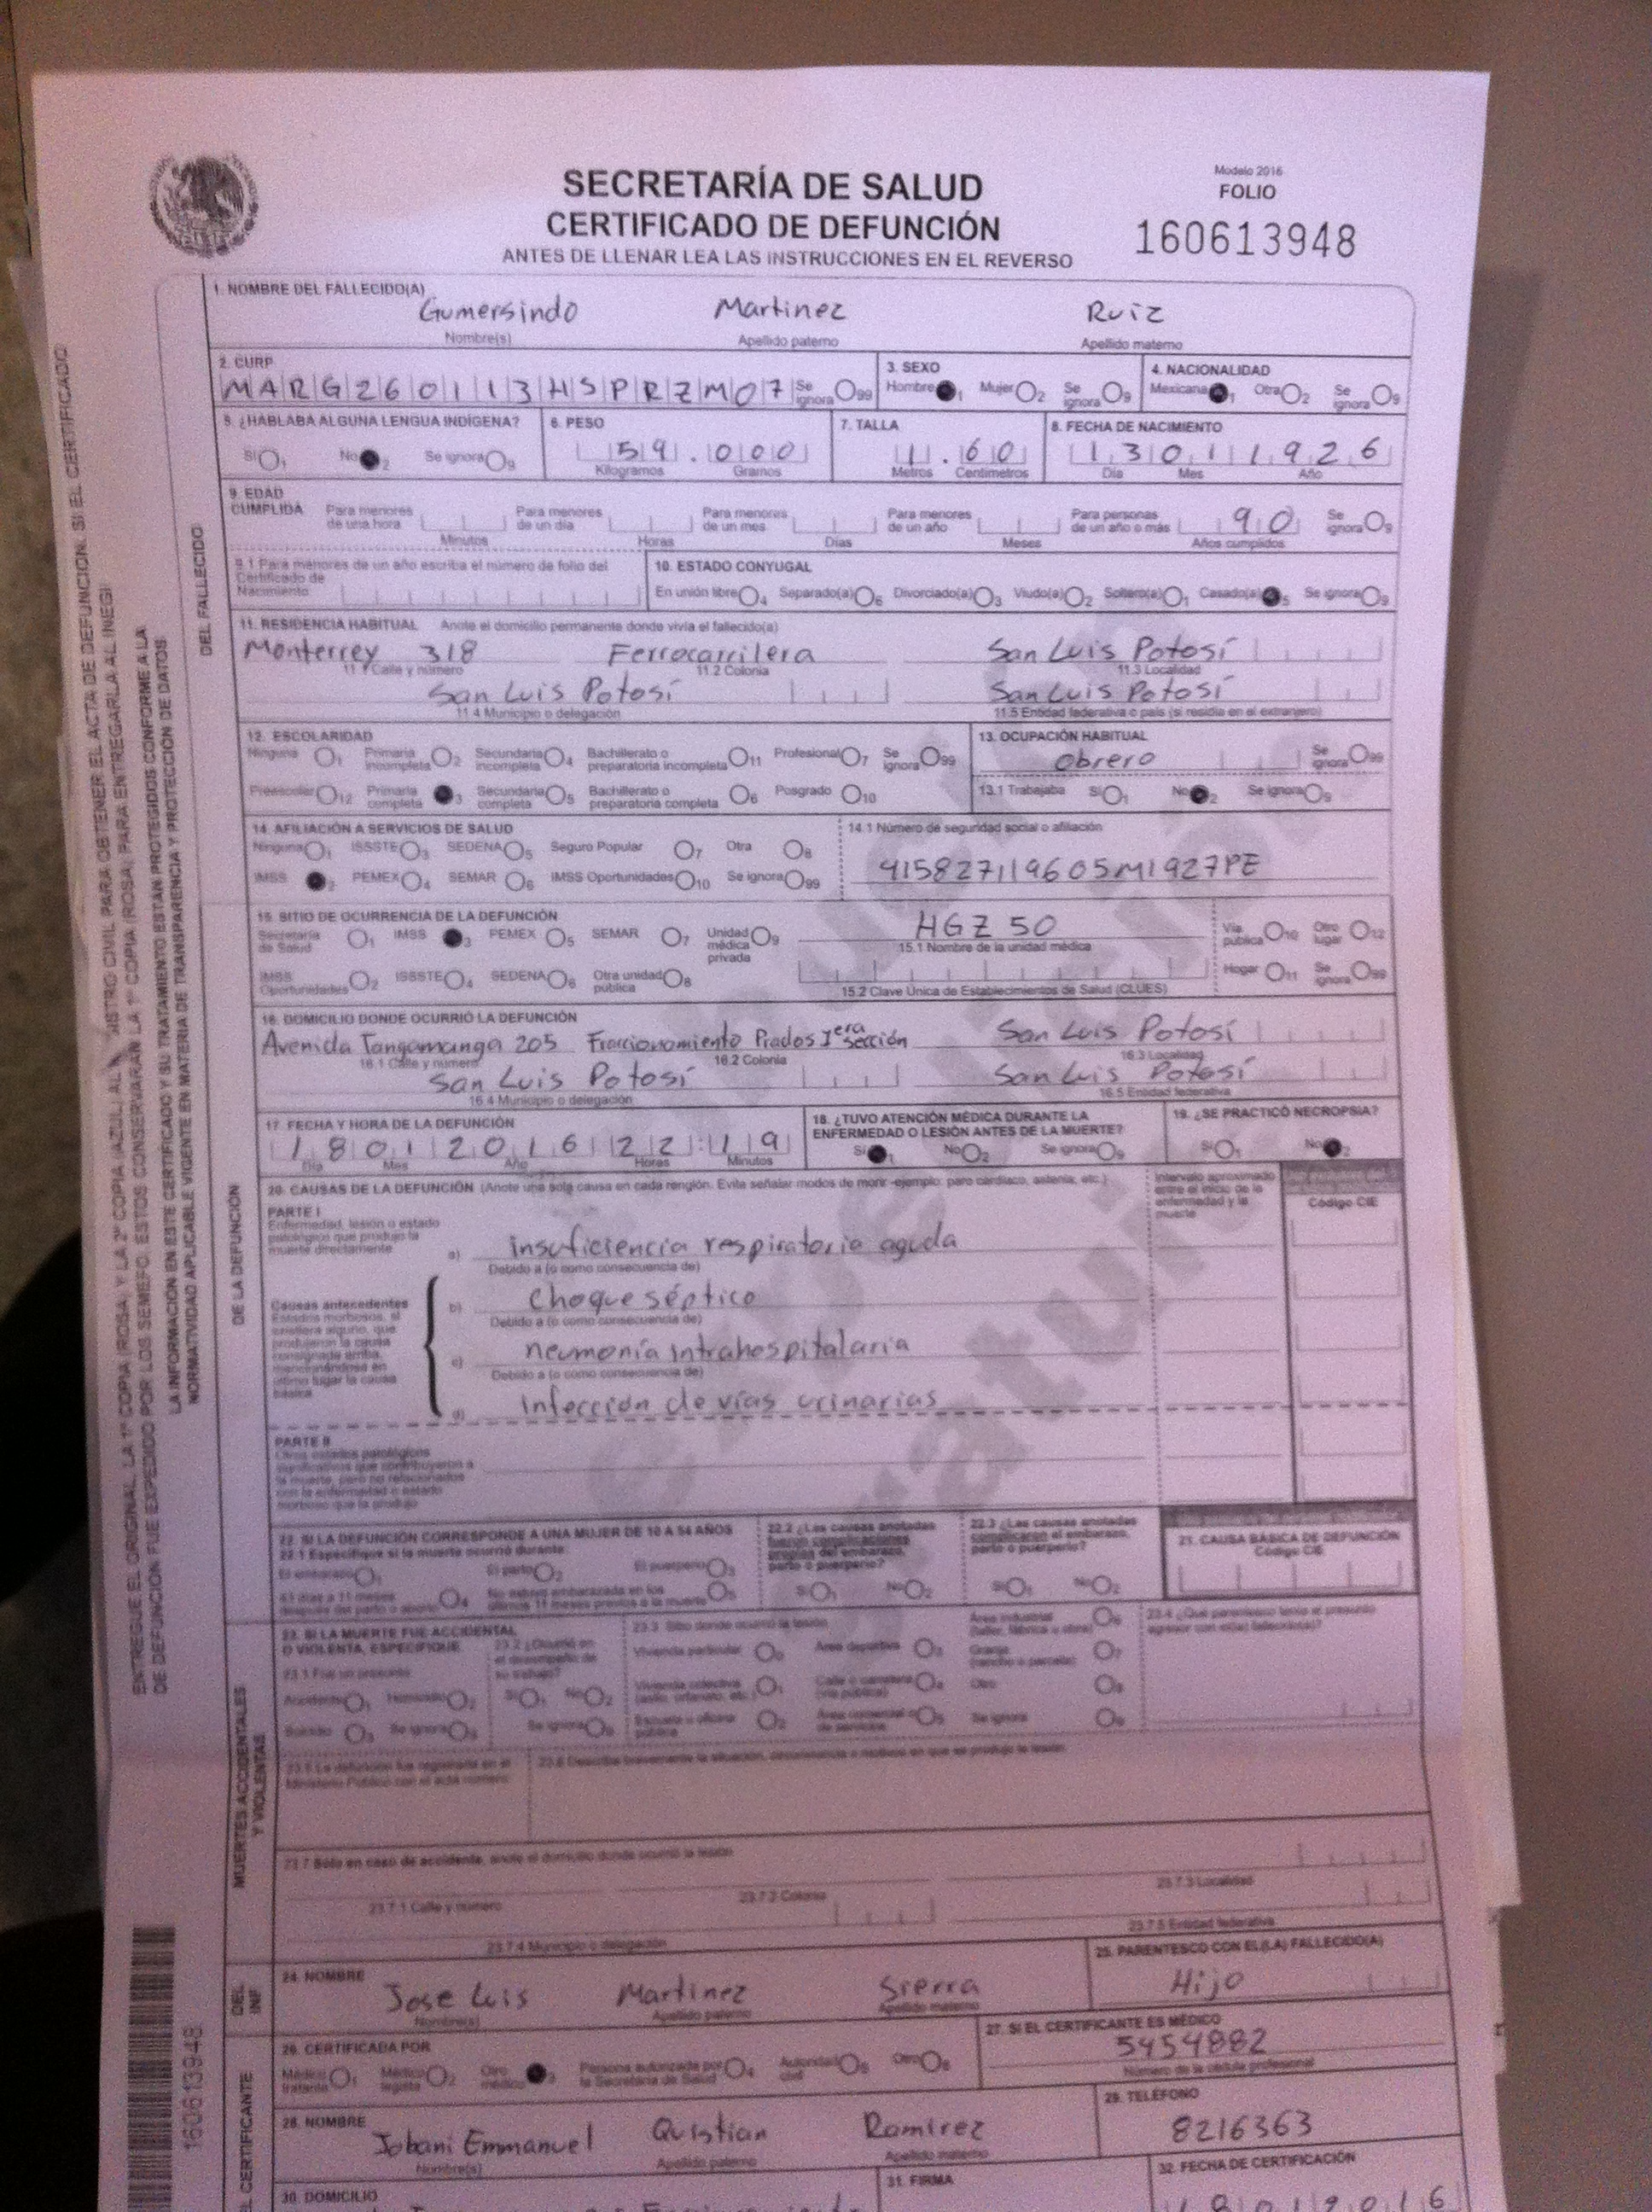 Modelo 2016
SECRETARÍA DE SALUD
FOLIO
CERTIFICADO DE DEFUNCIÓN
160613948
ANTES DE LLENAR LEA LAS INSTRUCCIONES EN EL REVERSO
1. NOMBRE DEL FALLECIDO(A)
Gumersindo Martinez Ruiz
Nombre(s) Apellido paterno Apellido materno
2. CURP 3. SEXO 4. NACIONALIDAD
MARG260113HSPRZM07 Se ignora 99 Hombre 1 Mujer 2 Se ignora 9 Mexicana 1 Otra 2 Se ignora 9
5. ¿HABLABA ALGUNA LENGUA INDÍGENA? 6. PESO 7. TALLA 8. FECHA DE NACIMIENTO
Sí 1 No 2 Se ignora 9 59.000 1.60 13 01 1926
Kilogramos Gramos Metros Centímetros Día Mes Año
9. EDAD CUMPLIDA Para menores de una hora Para menores de un día Para menores de un mes Para menores de un año Para personas de un año o más 90 Se ignora 9
Minutos Horas Días Meses Años cumplidos
9.1 Para menores de un año escriba el número de folio del Certificado de Nacimiento
10. ESTADO CONYUGAL
En unión libre 4 Separado(a) 6 Divorciado(a) 3 Viudo(a) 2 Soltero(a) 1 Casado(a) 5 Se ignora 9
11. RESIDENCIA HABITUAL Anote el domicilio permanente donde vivía el fallecido(a)
Monterrey 318 Ferrocarrilera San Luis Potosí
11.1 Calle y número 11.2 Colonia 11.3 Localidad
San Luis Potosí San Luis Potosí
11.4 Municipio o delegación 11.5 Entidad federativa o país (si residía en el extranjero)
12. ESCOLARIDAD 13. OCUPACIÓN HABITUAL
Ninguna 1 Primaria incompleta 2 Secundaria incompleta 4 Bachillerato o preparatoria incompleta 11 Profesional 7 Se ignora 99 obrero Se ignora 99
Preescolar 12 Primaria completa 3 Secundaria completa 5 Bachillerato o preparatoria completa 6 Posgrado 10 13.1 Trabajaba Sí 1 No 2 Se ignora 9
14. AFILIACIÓN A SERVICIOS DE SALUD 14.1 Número de seguridad social o afiliación
Ninguna 1 ISSSTE 3 SEDENA 5 Seguro Popular 7 Otra 8
IMSS 2 PEMEX 4 SEMAR 6 IMSS Oportunidades 10 Se ignora 99 415827119605M1927PE
15. SITIO DE OCURRENCIA DE LA DEFUNCIÓN HGZ 50
Secretaría de Salud 1 IMSS 3 PEMEX 5 SEMAR 7 Unidad médica privada 9 15.1 Nombre de la unidad médica Vía pública 10 Otro lugar 12
IMSS Oportunidades 2 ISSSTE 4 SEDENA 6 Otra unidad pública 8 15.2 Clave Única de Establecimientos de Salud (CLUES) Hogar 11 Se ignora 99
16. DOMICILIO DONDE OCURRIÓ LA DEFUNCIÓN
Avenida Tangamanga 205 Fraccionamiento Prados 1era sección San Luis Potosí
16.1 Calle y número 16.2 Colonia 16.3 Localidad
San Luis Potosí San Luis Potosí
16.4 Municipio o delegación 16.5 Entidad federativa
17. FECHA Y HORA DE LA DEFUNCIÓN 18. ¿TUVO ATENCIÓN MÉDICA DURANTE LA ENFERMEDAD O LESIÓN ANTES DE LA MUERTE? 19. ¿SE PRACTICÓ NECROPSIA?
18 01 2016 22:19 Sí 1 No 2 Se ignora 9 Sí 1 No 2
Día Mes Año Horas Minutos
20. CAUSAS DE LA DEFUNCIÓN (Anote una sola causa en cada renglón. Evite señalar modos de morir -ejemplo: paro cardiaco, astenia, etc.) Intervalo aproximado entre el inicio de la enfermedad y la muerte Código CIE
PARTE I
Enfermedad, lesión o estado patológico que produjo la muerte directamente
a) insuficiencia respiratoria aguda
Debido a (o como consecuencia de)
Causas antecedentes
b) Choque séptico
Debido a (o como consecuencia de)
c) neumonía intrahospitalaria
Debido a (o como consecuencia de)
d) Infección de vías urinarias
PARTE II
22. SI LA DEFUNCIÓN CORRESPONDE A UNA MUJER DE 10 A 54 AÑOS
22.1 Especifique si la muerte ocurrió durante:
El embarazo 1 El parto 2 El puerperio 3
22.2 ¿Las causas anotadas fueron complicaciones propias del embarazo, parto o puerperio?
Sí 1 No 2
22.3 ¿Las causas anotadas complicaron el embarazo, parto o puerperio?
Sí 1 No 2
21. CAUSA BÁSICA DE DEFUNCIÓN
Código CIE
23. SI LA MUERTE FUE ACCIDENTAL O VIOLENTA, ESPECIFIQUE
23.1 Fue un presunto
Accidente 1 Homicidio 2
Suicidio 3 Se ignora 9
Sí 1 No 2
Se ignora 9
23.3 Sitio donde ocurrió la lesión
Vivienda particular 0 Área deportiva 3
23.7 Sólo en caso de accidente, anote el domicilio donde ocurrió la lesión
23.7.1 Calle y número 23.7.2 Colonia 23.7.3 Localidad
23.7.4 Municipio o delegación 23.7.5 Entidad federativa
24. NOMBRE 25. PARENTESCO CON EL(LA) FALLECIDO(A)
Jose Luis Martinez Sierra Hijo
Nombre(s) Apellido paterno Apellido materno
26. CERTIFICADA POR 27. SI EL CERTIFICANTE ES MÉDICO
Médico tratante 1 Médico legista 2 Otro médico 3 Persona autorizada por la Secretaría de Salud 4 Autoridad civil 5 Otro 8 5454882
Número de la cédula profesional
28. NOMBRE 29. TELÉFONO
Jobani Emmanuel Quistian Ramirez 8216363
Nombre(s) Apellido paterno Apellido materno
30. DOMICILIO 31. FIRMA 32. FECHA DE CERTIFICACIÓN
18 01 2016
DEL FALLECIDO
DE LA DEFUNCIÓN
MUERTES ACCIDENTALES Y VIOLENTAS
DEL INF
EL CERTIFICANTE
LA INFORMACIÓN EN ESTE CERTIFICADO Y SU TRATAMIENTO ESTÁN PROTEGIDOS CONFORME A LA
NORMATIVIDAD APLICABLE VIGENTE EN MATERIA DE TRANSPARENCIA Y PROTECCIÓN DE DATOS
160613948